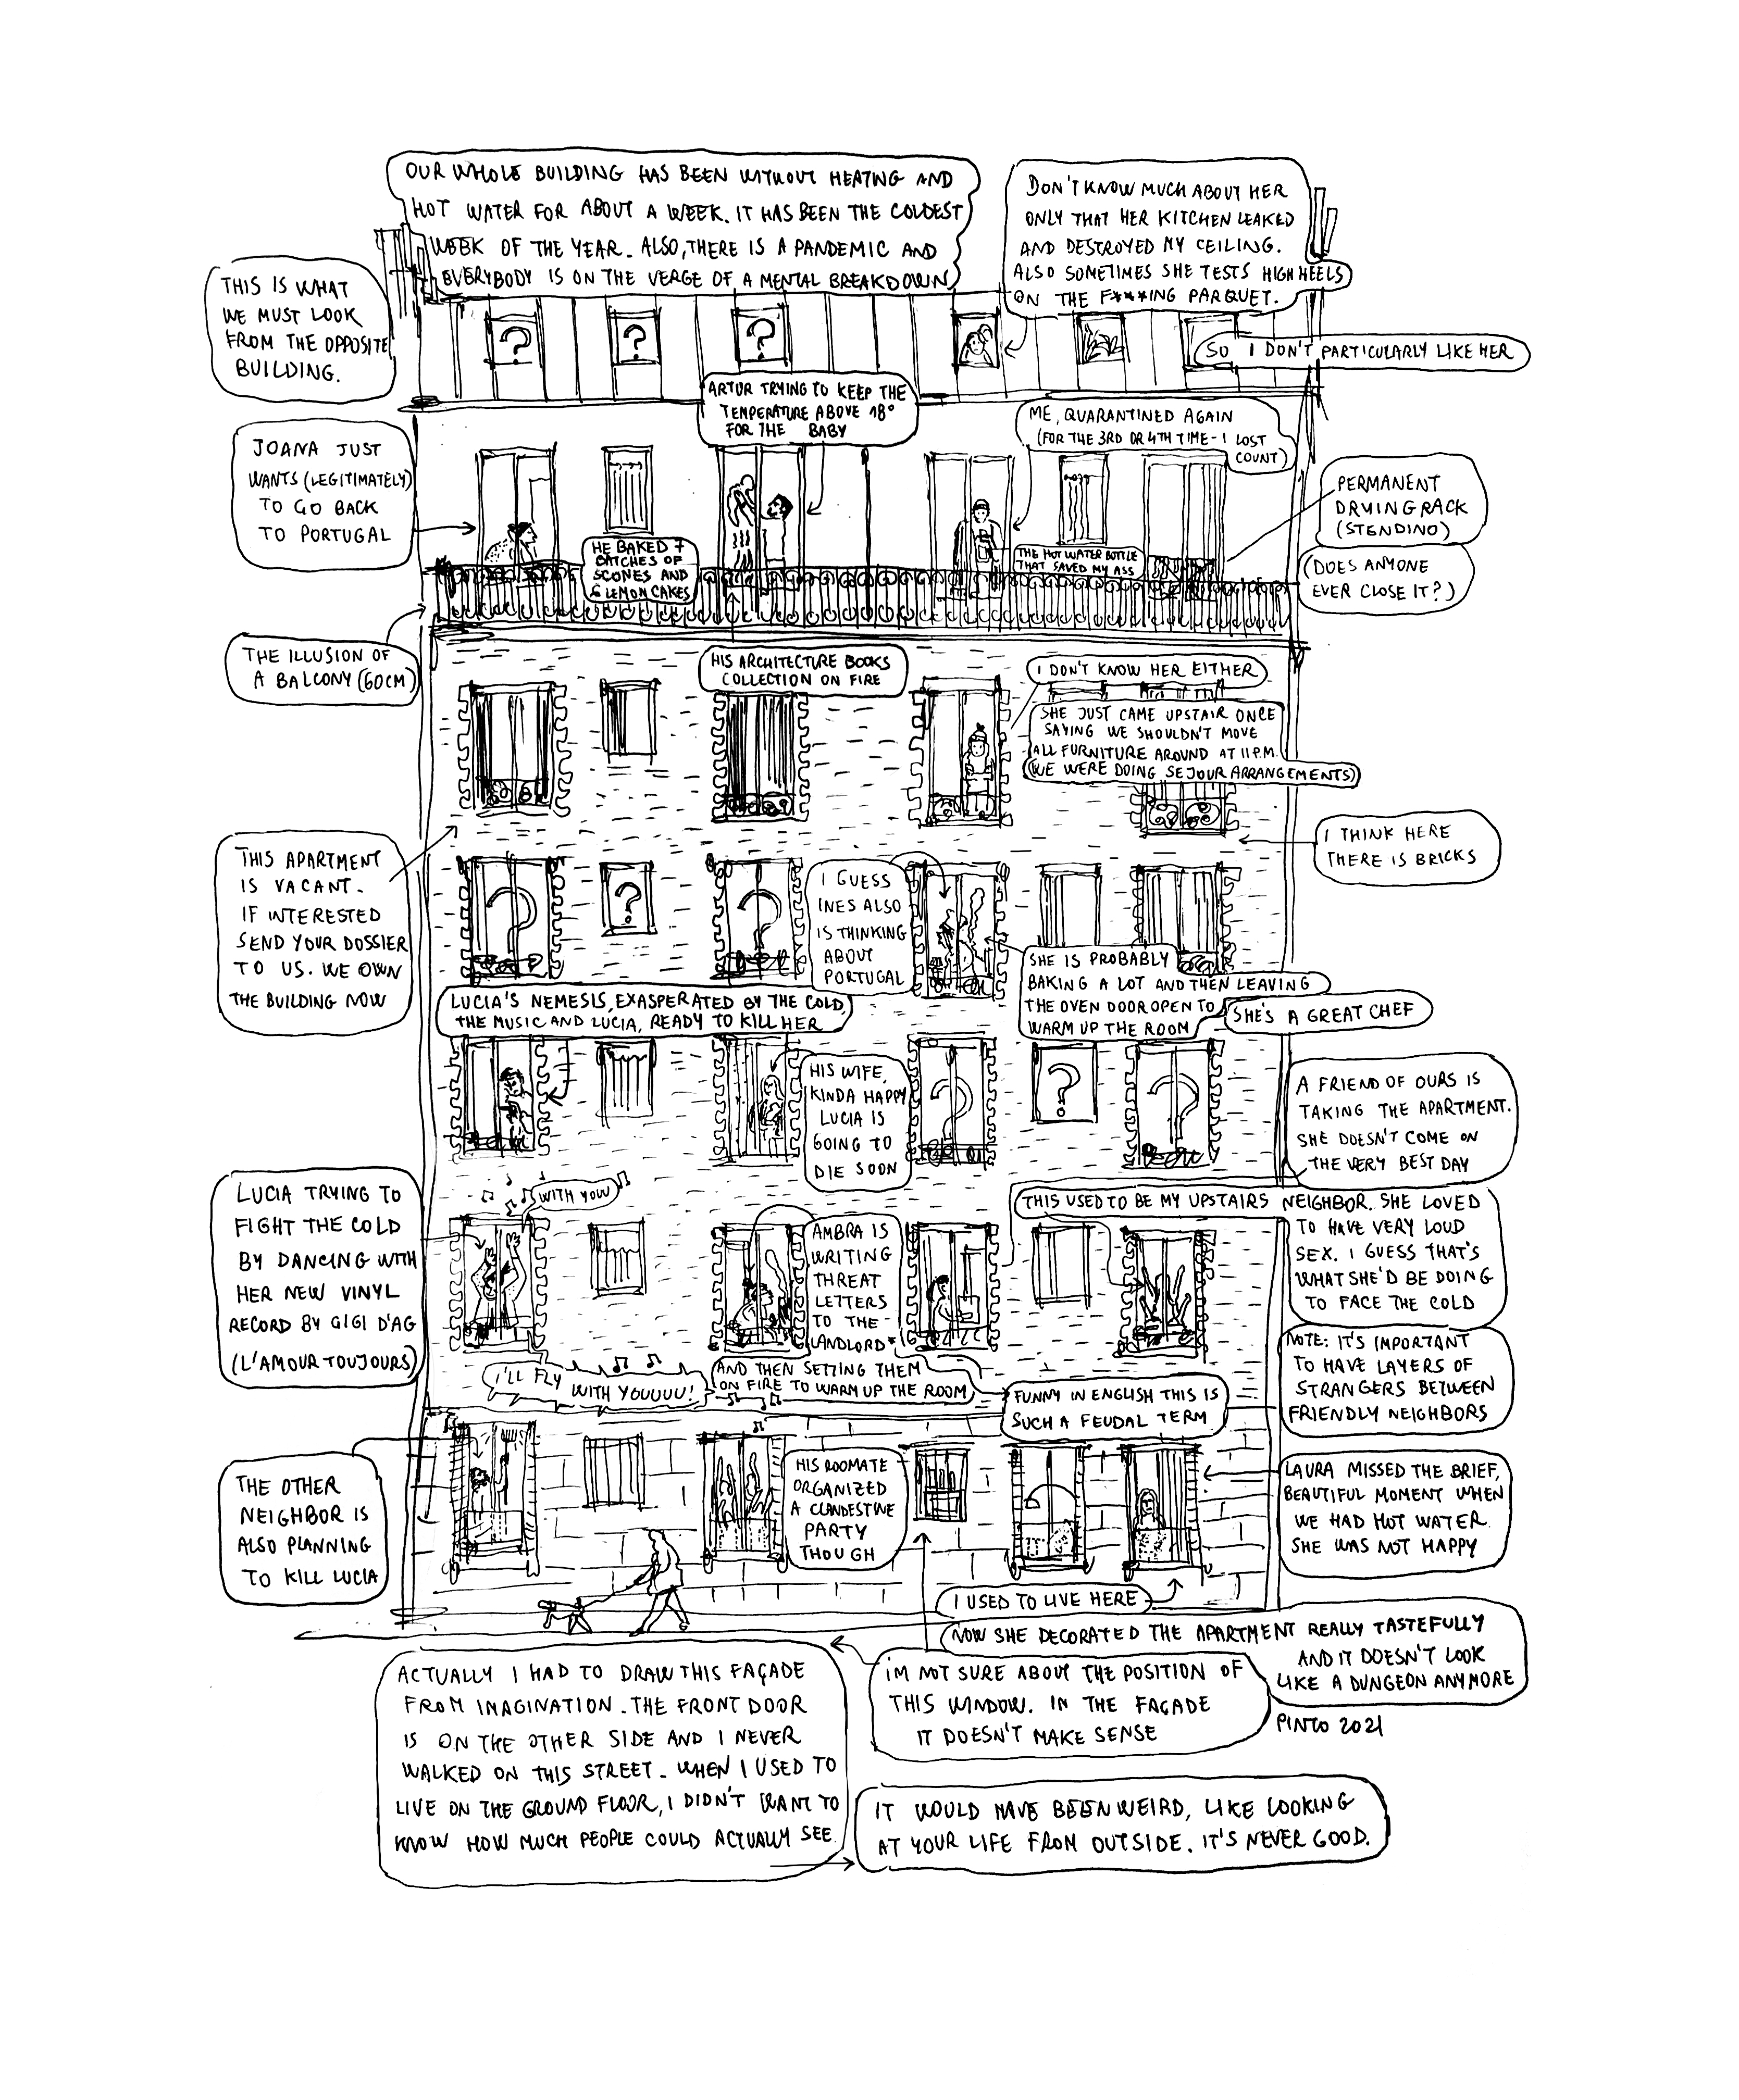 OUR WHOLE BUILDING HAS BEEN WITHOUT HEATING AND
HOT WATER FOR ABOUT A WEEK. IT HAS BEEN THE COLDEST
WEEK OF THE YEAR. ALSO, THERE IS A PANDEMIC AND
EVERYBODY IS ON THE VERGE OF A MENTAL BREAKDOWN
DON'T KNOW MUCH ABOUT HER
ONLY THAT HER KITCHEN LEAKED
AND DESTROYED MY CEILING.
ALSO SOMETIMES SHE TESTS HIGH HEELS
ON THE F***ING PARQUET.
SO I DON'T PARTICULARLY LIKE HER
THIS IS WHAT
WE MUST LOOK
FROM THE OPPOSITE
BUILDING.
?
?
?
ARTUR TRYING TO KEEP THE
TEMPERATURE ABOVE 18°
FOR THE BABY
ME, QUARANTINED AGAIN
(FOR THE 3RD OR 4TH TIME - I LOST
COUNT)
JOANA JUST
WANTS (LEGITIMATELY)
TO GO BACK
TO PORTUGAL
PERMANENT
DRYING RACK
(STENDINO)
(DOES ANYONE
EVER CLOSE IT?)
HE BAKED 7
BATCHES OF
SCONES AND
6 LEMON CAKES
THE HOT WATER BOTTLE
THAT SAVED MY ASS
THE ILLUSION OF
A BALCONY (60CM)
HIS ARCHITECTURE BOOKS
COLLECTION ON FIRE
I DON'T KNOW HER EITHER
SHE JUST CAME UPSTAIR ONCE
SAYING WE SHOULDN'T MOVE
ALL FURNITURE AROUND AT 11 P.M.
(WE WERE DOING SEJOUR ARRANGEMENTS)
I THINK HERE
THERE IS BRICKS
THIS APARTMENT
IS VACANT.
IF INTERESTED
SEND YOUR DOSSIER
TO US. WE OWN
THE BUILDING NOW
?
?
?
I GUESS
INES ALSO
IS THINKING
ABOUT
PORTUGAL
SHE IS PROBABLY
BAKING A LOT AND THEN LEAVING
THE OVEN DOOR OPEN TO
WARM UP THE ROOM
SHE'S A GREAT CHEF
LUCIA'S NEMESIS, EXASPERATED BY THE COLD,
THE MUSIC AND LUCIA, READY TO KILL HER
HIS WIFE,
KINDA HAPPY
LUCIA IS
GOING TO
DIE SOON
?
?
?
A FRIEND OF OURS IS
TAKING THE APARTMENT.
SHE DOESN'T COME ON
THE VERY BEST DAY
LUCIA TRYING TO
FIGHT THE COLD
BY DANCING WITH
HER NEW VINYL
RECORD BY GIGI D'AG
(L'AMOUR TOUJOURS)
WITH YOU
THIS USED TO BE MY UPSTAIRS NEIGHBOR. SHE LOVED
TO HAVE VERY LOUD
SEX. I GUESS THAT'S
WHAT SHE'D BE DOING
TO FACE THE COLD
AMBRA IS
WRITING
THREAT
LETTERS
TO THE
LANDLORD*
AND THEN SETTING THEM
ON FIRE TO WARM UP THE ROOM
I'LL FLY
WITH YOUUUU!
FUNNY IN ENGLISH THIS IS
SUCH A FEUDAL TERM
NOTE: IT'S IMPORTANT
TO HAVE LAYERS OF
STRANGERS BETWEEN
FRIENDLY NEIGHBORS
THE OTHER
NEIGHBOR IS
ALSO PLANNING
TO KILL LUCIA
HIS ROOMATE
ORGANIZED
A CLANDESTINE
PARTY
THOUGH
LAURA MISSED THE BRIEF,
BEAUTIFUL MOMENT WHEN
WE HAD HOT WATER.
SHE WAS NOT HAPPY
I USED TO LIVE HERE
NOW SHE DECORATED THE APARTMENT REALLY TASTEFULLY
AND IT DOESN'T LOOK
LIKE A DUNGEON ANYMORE
I'M NOT SURE ABOUT THE POSITION OF
THIS WINDOW. IN THE FAÇADE
IT DOESN'T MAKE SENSE
PINTO 2021
ACTUALLY I HAD TO DRAW THIS FAÇADE
FROM IMAGINATION. THE FRONT DOOR
IS ON THE OTHER SIDE AND I NEVER
WALKED ON THIS STREET. WHEN I USED TO
LIVE ON THE GROUND FLOOR, I DIDN'T WANT TO
KNOW HOW MUCH PEOPLE COULD ACTUALLY SEE.
IT WOULD HAVE BEEN WEIRD, LIKE LOOKING
AT YOUR LIFE FROM OUTSIDE. IT'S NEVER GOOD.